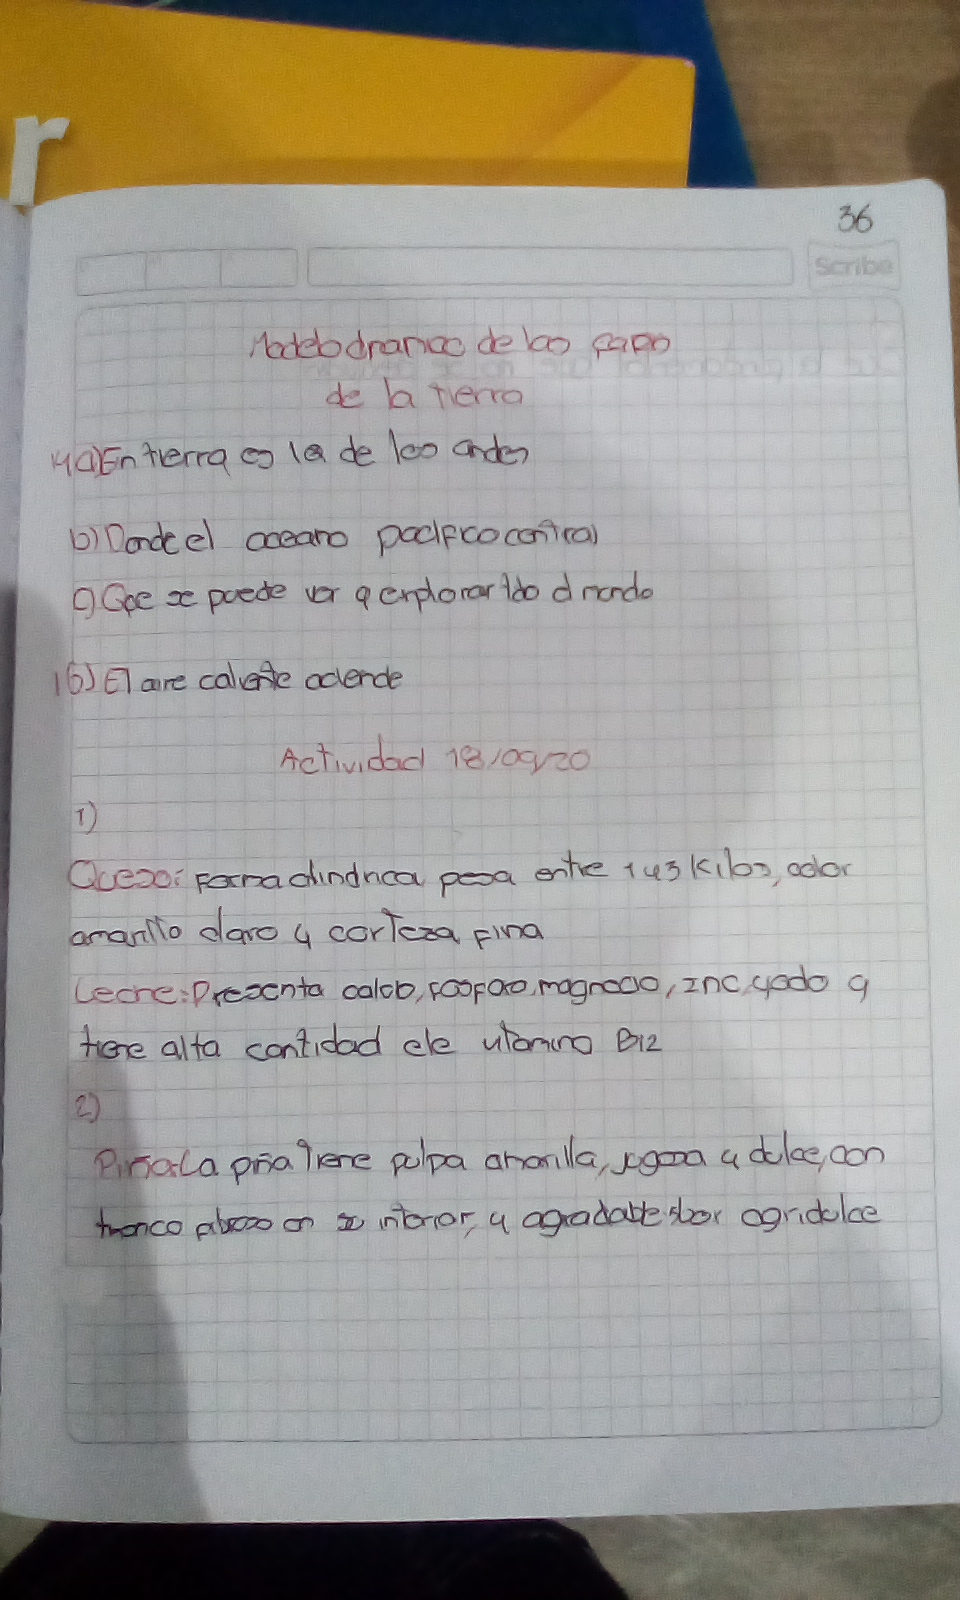 r
36
Scribe
Modelo dinamico de las capas
de la tierra
14a) En tierra es la de los andes
b) Donde el oceano pacifico central
c) Que se puede ver y explorar todo el mundo
16) El aire caliente aciende
Actividad 18/09/20
1)
Queso: forma cilindrica pesa entre 1 y 3 Kilos, color
amarillo claro y corteza fina
Leche: Presenta calcio, fosforo, magnesio, zinc, yodo y
tiene alta cantidad de vitamina B12
2)
Piña: La piña tiene pulpa amarilla, jugosa y dulce, con
tronco fibroso en su interior, y agradable sabor agridulce